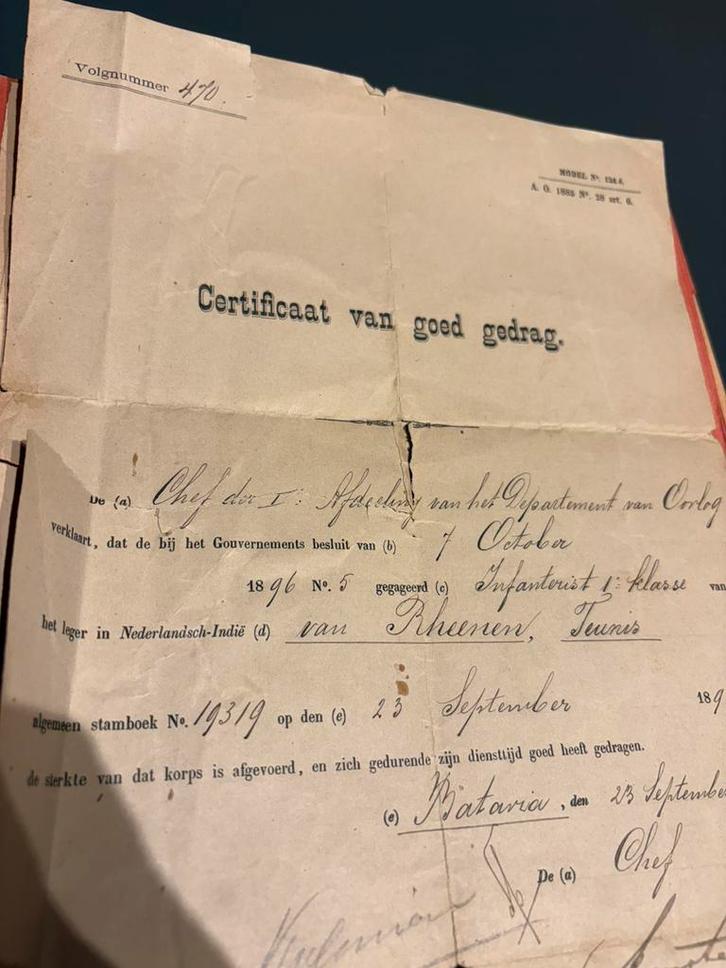 Volgnummer 470.
MODEL Nº.
A. O. 1885 Nº. 28 art. 6.
Certificaat van goed gedrag.
De (a) Chef der Iᵉ: Afdeeling van het Departement van Oorlog
verklaart, dat de bij het Gouvernements besluit van (b) 7 October
1896 Nº. 5 gegageerd (c) Infanterist 1ᵉ klasse van
het leger in Nederlandsch-Indië (d) van Rheenen, Teunis
algemeen stamboek Nº. 19319 op den (e) 23 September 189
de sterkte van dat korps is afgevoerd, en zich gedurende zijn diensttijd goed heeft gedragen.
(e) Batavia, den 23 Septembe
De (a) Chef